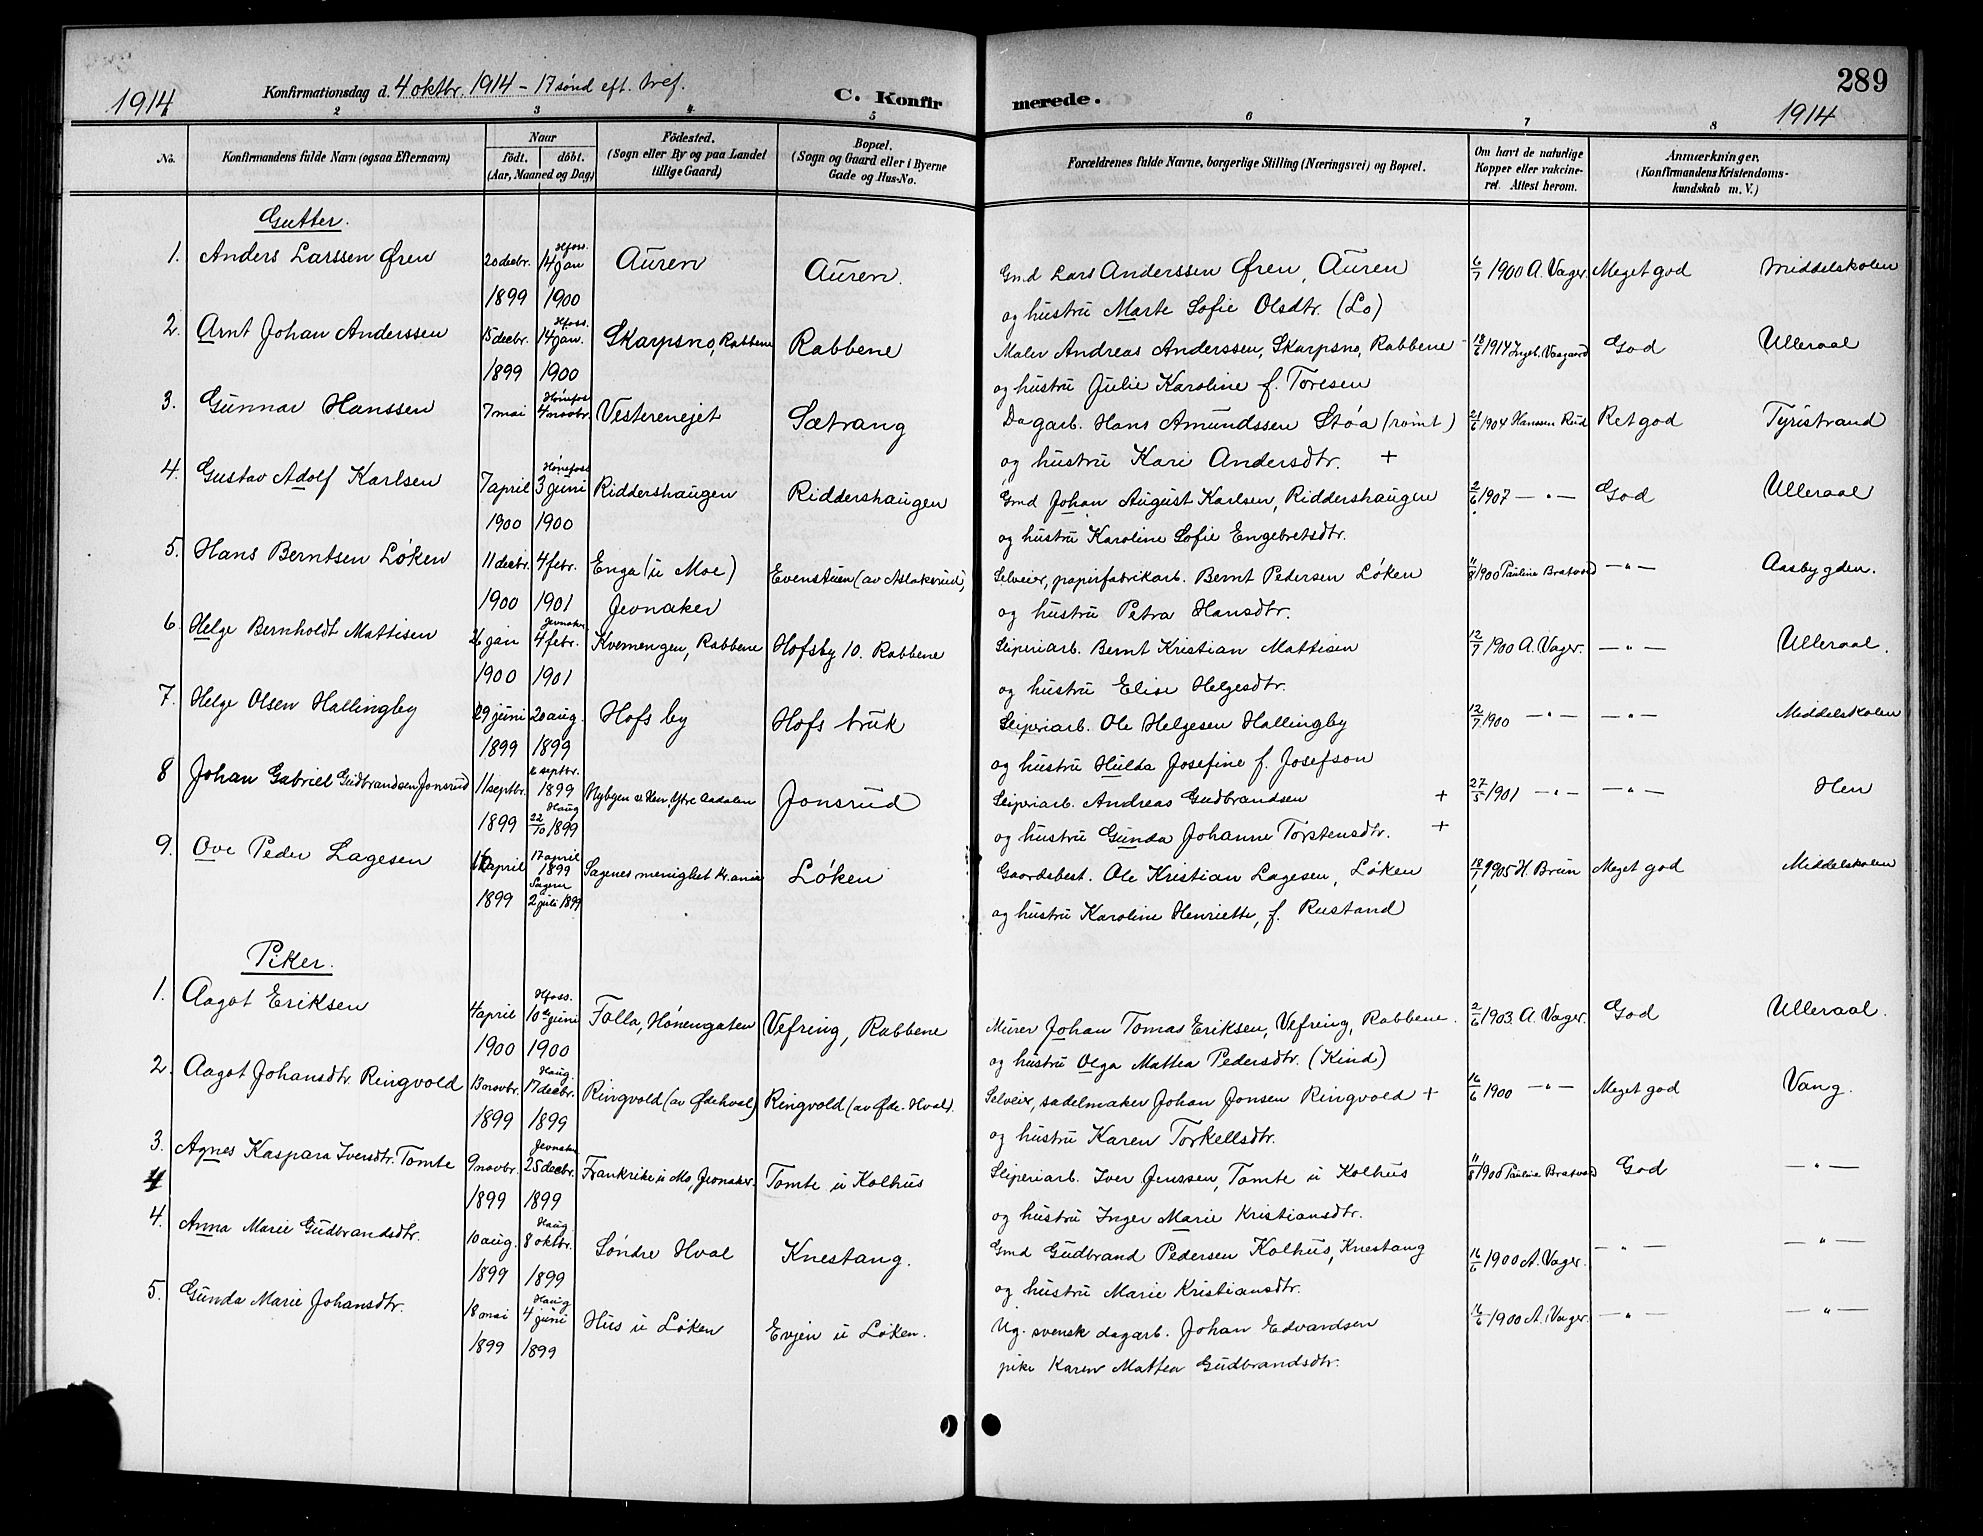 289
1914 Konfirmationsdag d. 4 oktbr. 1914 - 17 sønd eft. tref. C. Konfirmerede. 1914
2 3 4 5 6 7 8
No. Konfirmandens fulde Navn (ogsaa Efternavn) Naar født. døbt. (Aar, Maaned og Dag) Fødested. (Sogn eller By og paa Landet tillige Gaard) Bopæl. (Sogn og Gaard eller i Byerne Gade og Hus-No. Forældrenes fulde Navne, borgerlige Stilling (Næringsvei) og Bopæl. Om havt de naturlige Kopper eller vakcineret. Attest herom. Anmærkninger. (Konfirmandens Kristendomskundskab m. V.)
Gutter.
1. Anders Larssen Øren 20 decbr. Hfoss. 14 jan Auren Auren. Gmd Lars Anderssen Øren, Auren 6/7 1900 A. Vager. Meget god Middelskolen
1899 1900 og hustru Marte Sofie Olsdtr. (Lo)
2. Arnt Johan Anderssen 15 decbr. Hfoss. 14 jan. Skarpsno, Rabbene Rabbene Maler Andreas Anderssen, Skarpsno, Rabbene 18/6 1914 Ingeb. Vaagaard God Ulleraal
1899 1900 og hustru Julie Karoline f. Toresen
3. Gunnar Hanssen 7 mai Hønefoss 4 novbr. Vesterenejet Sætrang Dagarb. Hans Amundssen Støa (rømt) 21/6 1904 Hanssen Rud Ret god Tyristrand
og hustru Kari Andersdtr. +
4. Gustav Adolf Karlsen 7 april Hønefoss 3 juni Riddershaugen Riddershaugen Gmd Johan August Karlsen, Riddershaugen 2/6 1907 — " — God Ulleraal
1900 1900 og hustru Karoline Sofie Engebretsdtr.
5. Hans Berntsen Løken 11 decbr. 4 febr. Enga (u Moe) Evenstuen (av Aslaksrud) Selveier, papirfabrikarb. Bernt Pedersen Løken 11/8 1900 Pauline Bratvold — " — Aasbygden.
1900 1901 Jevnaker og hustru Petra Hansdtr.
6. Helge Bernholdt Mattisen 26 jan Jevnaker 4 febr. Kvernengen, Rabbene Hofsby 10. Rabbene Sliperiarb. Bernt Kristian Mattisen 12/7 1900 A. Vager. — " — Ulleraal.
1900 1901 og hustru Elise Helgesdtr.
7. Helge Olsen Hallingby 29 juni 20 aug. Hofsby Hofs bruk Sliperiarb. Ole Helgesen Hallingby 12/7 1900 — " — — " — Middelskolen
1899 1899 og hustru Hulda Josefine f. Josefson
8 Johan Gabriel Gudbrandsen Jonsrud 11 septbr. septbr. 1899 Nybyen v. Hen. Ytre Aadalen Jonsrud Sliperiarb. Andreas Gudbrandsen + 27/5 1901 — " — — " — Hen
1899 Haug 22/10 1899 og hustru Gunda Johanne Torstensdtr. +
9. Ove Peder Lagesen 16 april 17 april 1899 Sagenes menighet Kr.ania Løken Gaardsbest. Ole Kristian Lagesen, Løken 18/1 1905 H. Brun Meget god Middelskolen
1899 Sagene 2 juli 1899 og hustru Karoline Henriette, f. Rustand
Piker.
1. Aagot Eriksen 4 april Hfoss. 10de juni Folla, Hønengaten Vefring, Rabbene Murer Johan Tomas Eriksen, Vefring, Rabbene. 2/6 1903. A. Vager. God Ulleraal.
1900 1900 og hustru Olga Mattea Pedersdtr. (Kind)
2. Aagot Johansdtr. Ringvold 13 novbr. Haug. 17 decbr. Ringvold (av Ødehval) Ringvold (av Øde-Hval). Selveier, sadelmaker Johan Jonsen Ringvold + 16/6 1900 — " — Meget god Vang.
1899 1899 og hustru Karen Torkellsdtr.
3. Agnes Kaspara Iversdtr. Tomte 9 novbr. Jevnaker 25 decbr. Frankrike u Mo, Jevnaker. Tomte u Kolhus Sliperiarb. Iver Jenssen, Tomte u Kolhus 11/8 1900 Pauline Bratvold God — " —
4 1899 1899 og hustru Inger Marie Kristiansdtr.
4. Anna Marie Gudbrandsdtr. 10 aug. Haug. 8 oktbr. Søndre Hval Knestang. Gmd Gudbrand Pedersen Kolhus, Knestang 16/6 1900 A. Vager. — " — — " —
1899 1899 og hustru Marie Kristiansdtr.
5. Gunda Marie Johansdtr. 18 mai Haug 4 juni Hus u Løken Evjen u Løken. Ug. svensk dagarb. Johan Edvardsen 16/6 1900 A. Vager. — " — — " —
1899 1899 pike Karen Mattea Gudbrandsdtr.